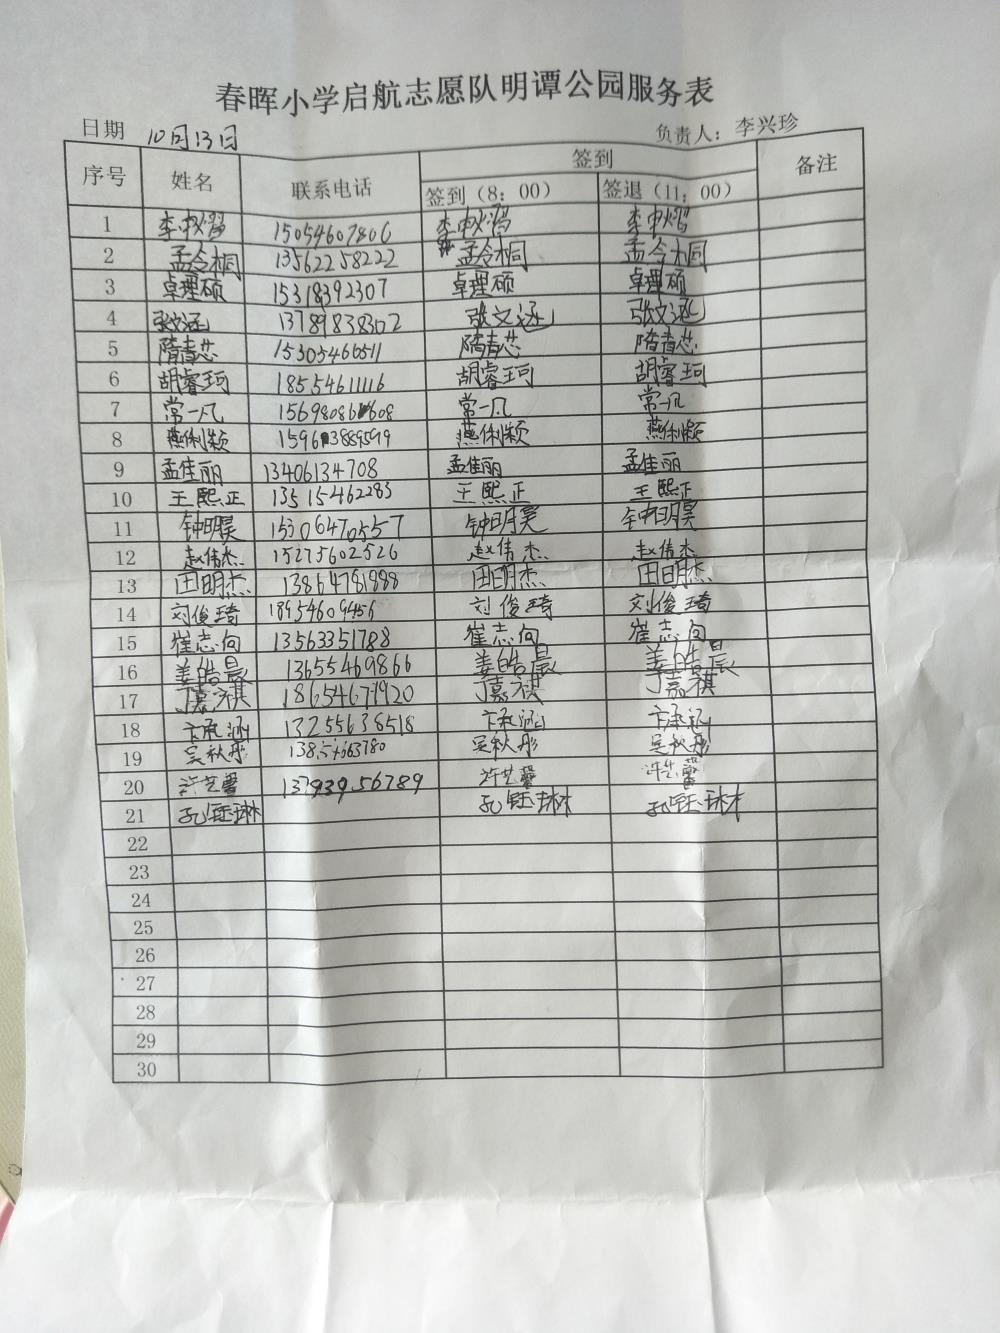 春晖小学启航志愿队明谭公园服务表
日期 10月13日 负责人：李兴珍
序号 姓名 联系电话 签到 备注
签到（8：00） 签退（11：00）
1 李 15054607806 李 李
2 孟令桐 13562258222 孟令桐 孟令桐
3 卓理硕 15318392307 卓理硕 卓理硕
4 张文涵 13789838302 张文涵 张文涵
5 隋青芯 15305466511 隋青芯 隋青芯
6 胡睿珂 18554611116 胡睿珂 胡睿珂
7 常一凡 常一凡 常一凡
8 燕俐颖 燕俐颖 燕俐颖
9 孟佳丽 13406134708 孟佳丽 孟佳丽
10 王熙正 13515462283 王熙正 王熙正
11 钟明昊 15306470557 钟明昊 钟明昊
12 赵伟杰 15275602526 赵伟杰 赵伟杰
13 田明杰 13864781888 田明杰 田明杰
14 刘俊琦 18954609456 刘俊琦 刘俊琦
15 崔志向 13563351788 崔志向 崔志向
16 姜皓晨 13655469866 姜皓晨 姜皓晨
17 丁嘉祺 丁嘉祺 丁嘉祺
18 卞承涵 13255638518 卞承涵 卞承涵
19 吴秋彤 吴秋彤 吴秋彤
20 许艺馨 13793956789 许艺馨 许艺馨
21 孔钰琳 孔钰琳 孔钰琳
22
23
24
25
26
27
28
29
30